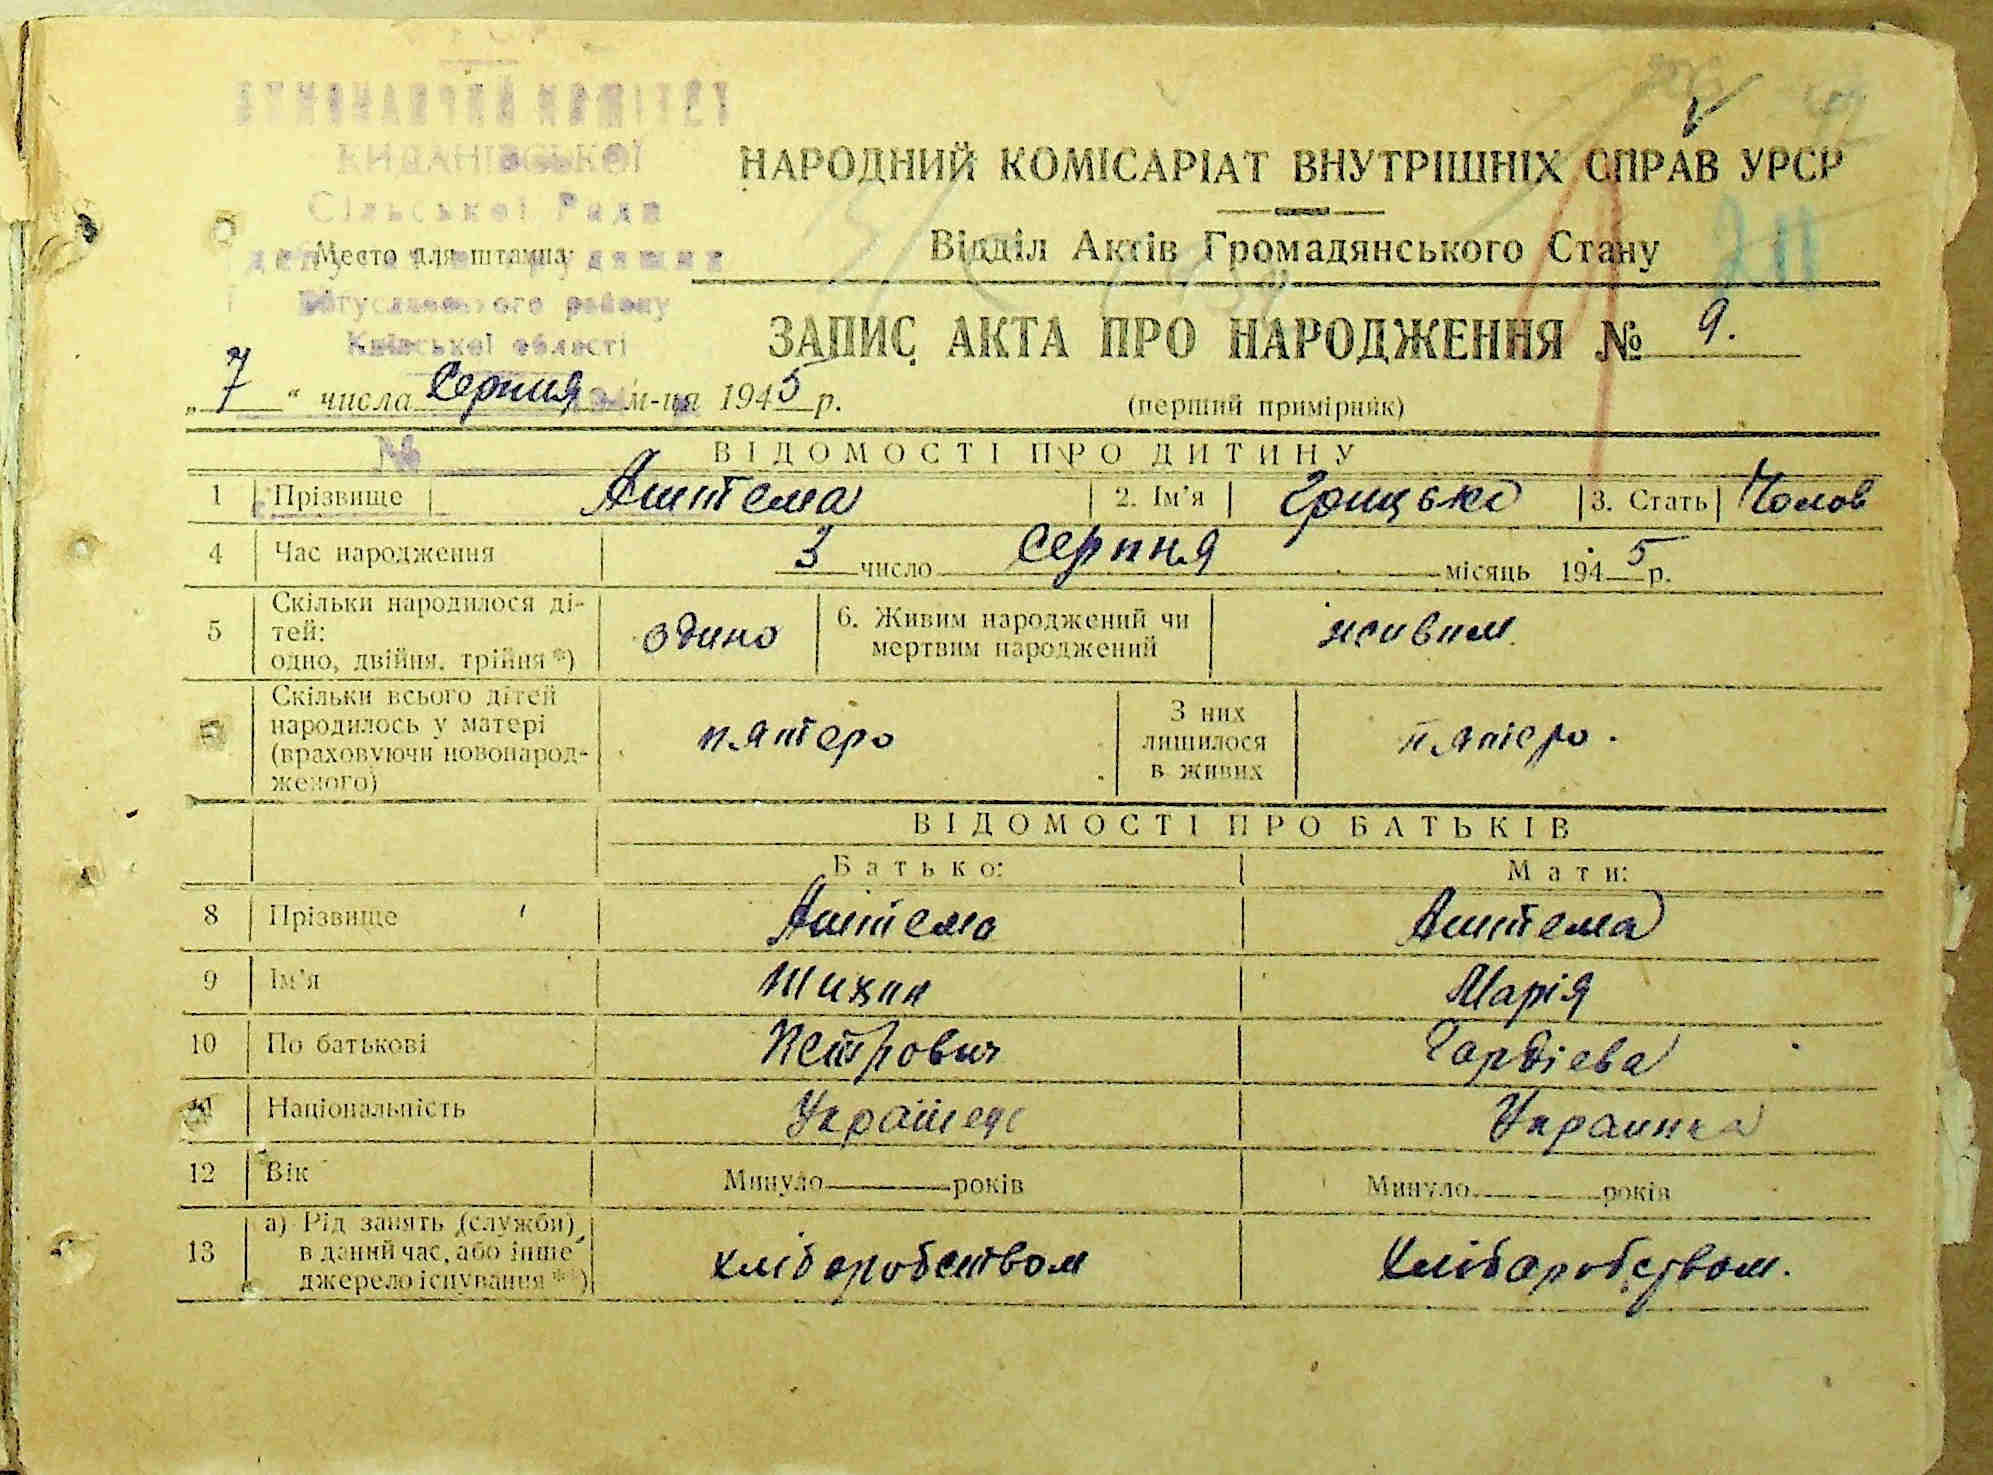 ВИКОНАВЧИЙ КОМІТЕТ
КИДАНІВСЬКОЇ
Сільської Ради
Место для штампа
депутатів трудящих
Богуславського району
Київської області
НАРОДНИЙ КОМІСАРІАТ ВНУТРІШНІХ СПРАВ УРСР
Відділ Актів Громадянського Стану
211
ЗАПИС АКТА ПРО НАРОДЖЕННЯ № 9.
„7“ числа Серпня м-ця 1945 р.
(перший примірник)
№
ВІДОМОСТІ ПРО ДИТИНУ
1 Прізвище Аштема 2. Ім'я Грицько 3. Стать Чолов
4 Час народження 3 число Серпня місяць 1945 р.
5 Скільки народилося ді-
тей:
одно, двійня, трійня *) одино 6. Живим народжений чи
мертвим народжений живим
Скільки всього дітей
народилось у матері
(враховуючи новонарод-
женого) пятеро З них
лишилося
в живих пятеро.
ВІДОМОСТІ ПРО БАТЬКІВ
Батько: Мати:
8 Прізвище Аштема Аштема
9 Ім'я Тихон Марія
10 По батькові Петрович Гордієва
11 Національність Українець Украинка
12 Вік Минуло років Минуло років
13 а) Рід занять (служби)
в даний час, або інше
джерело існування **) хліборобством Хліборобством.